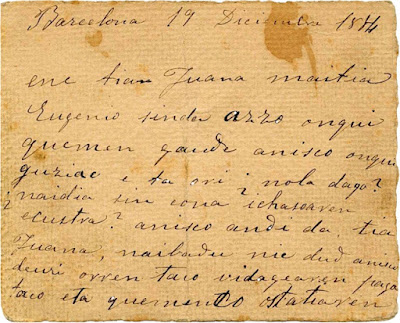 Barcelona 19 Diciembre 1884
ene tian Juana maitia
Eugenio sinda azzo onqui
quemen gaude anisco onqui
guziac e ta ori ¿nola dago?
¿naidia sin cona? ichasoaren
ecustra? anisco andi da tia
Juana, naibadu nic dud anisco
deuri orren taco vidagearen paga
taco eta quemenco ostatuaren